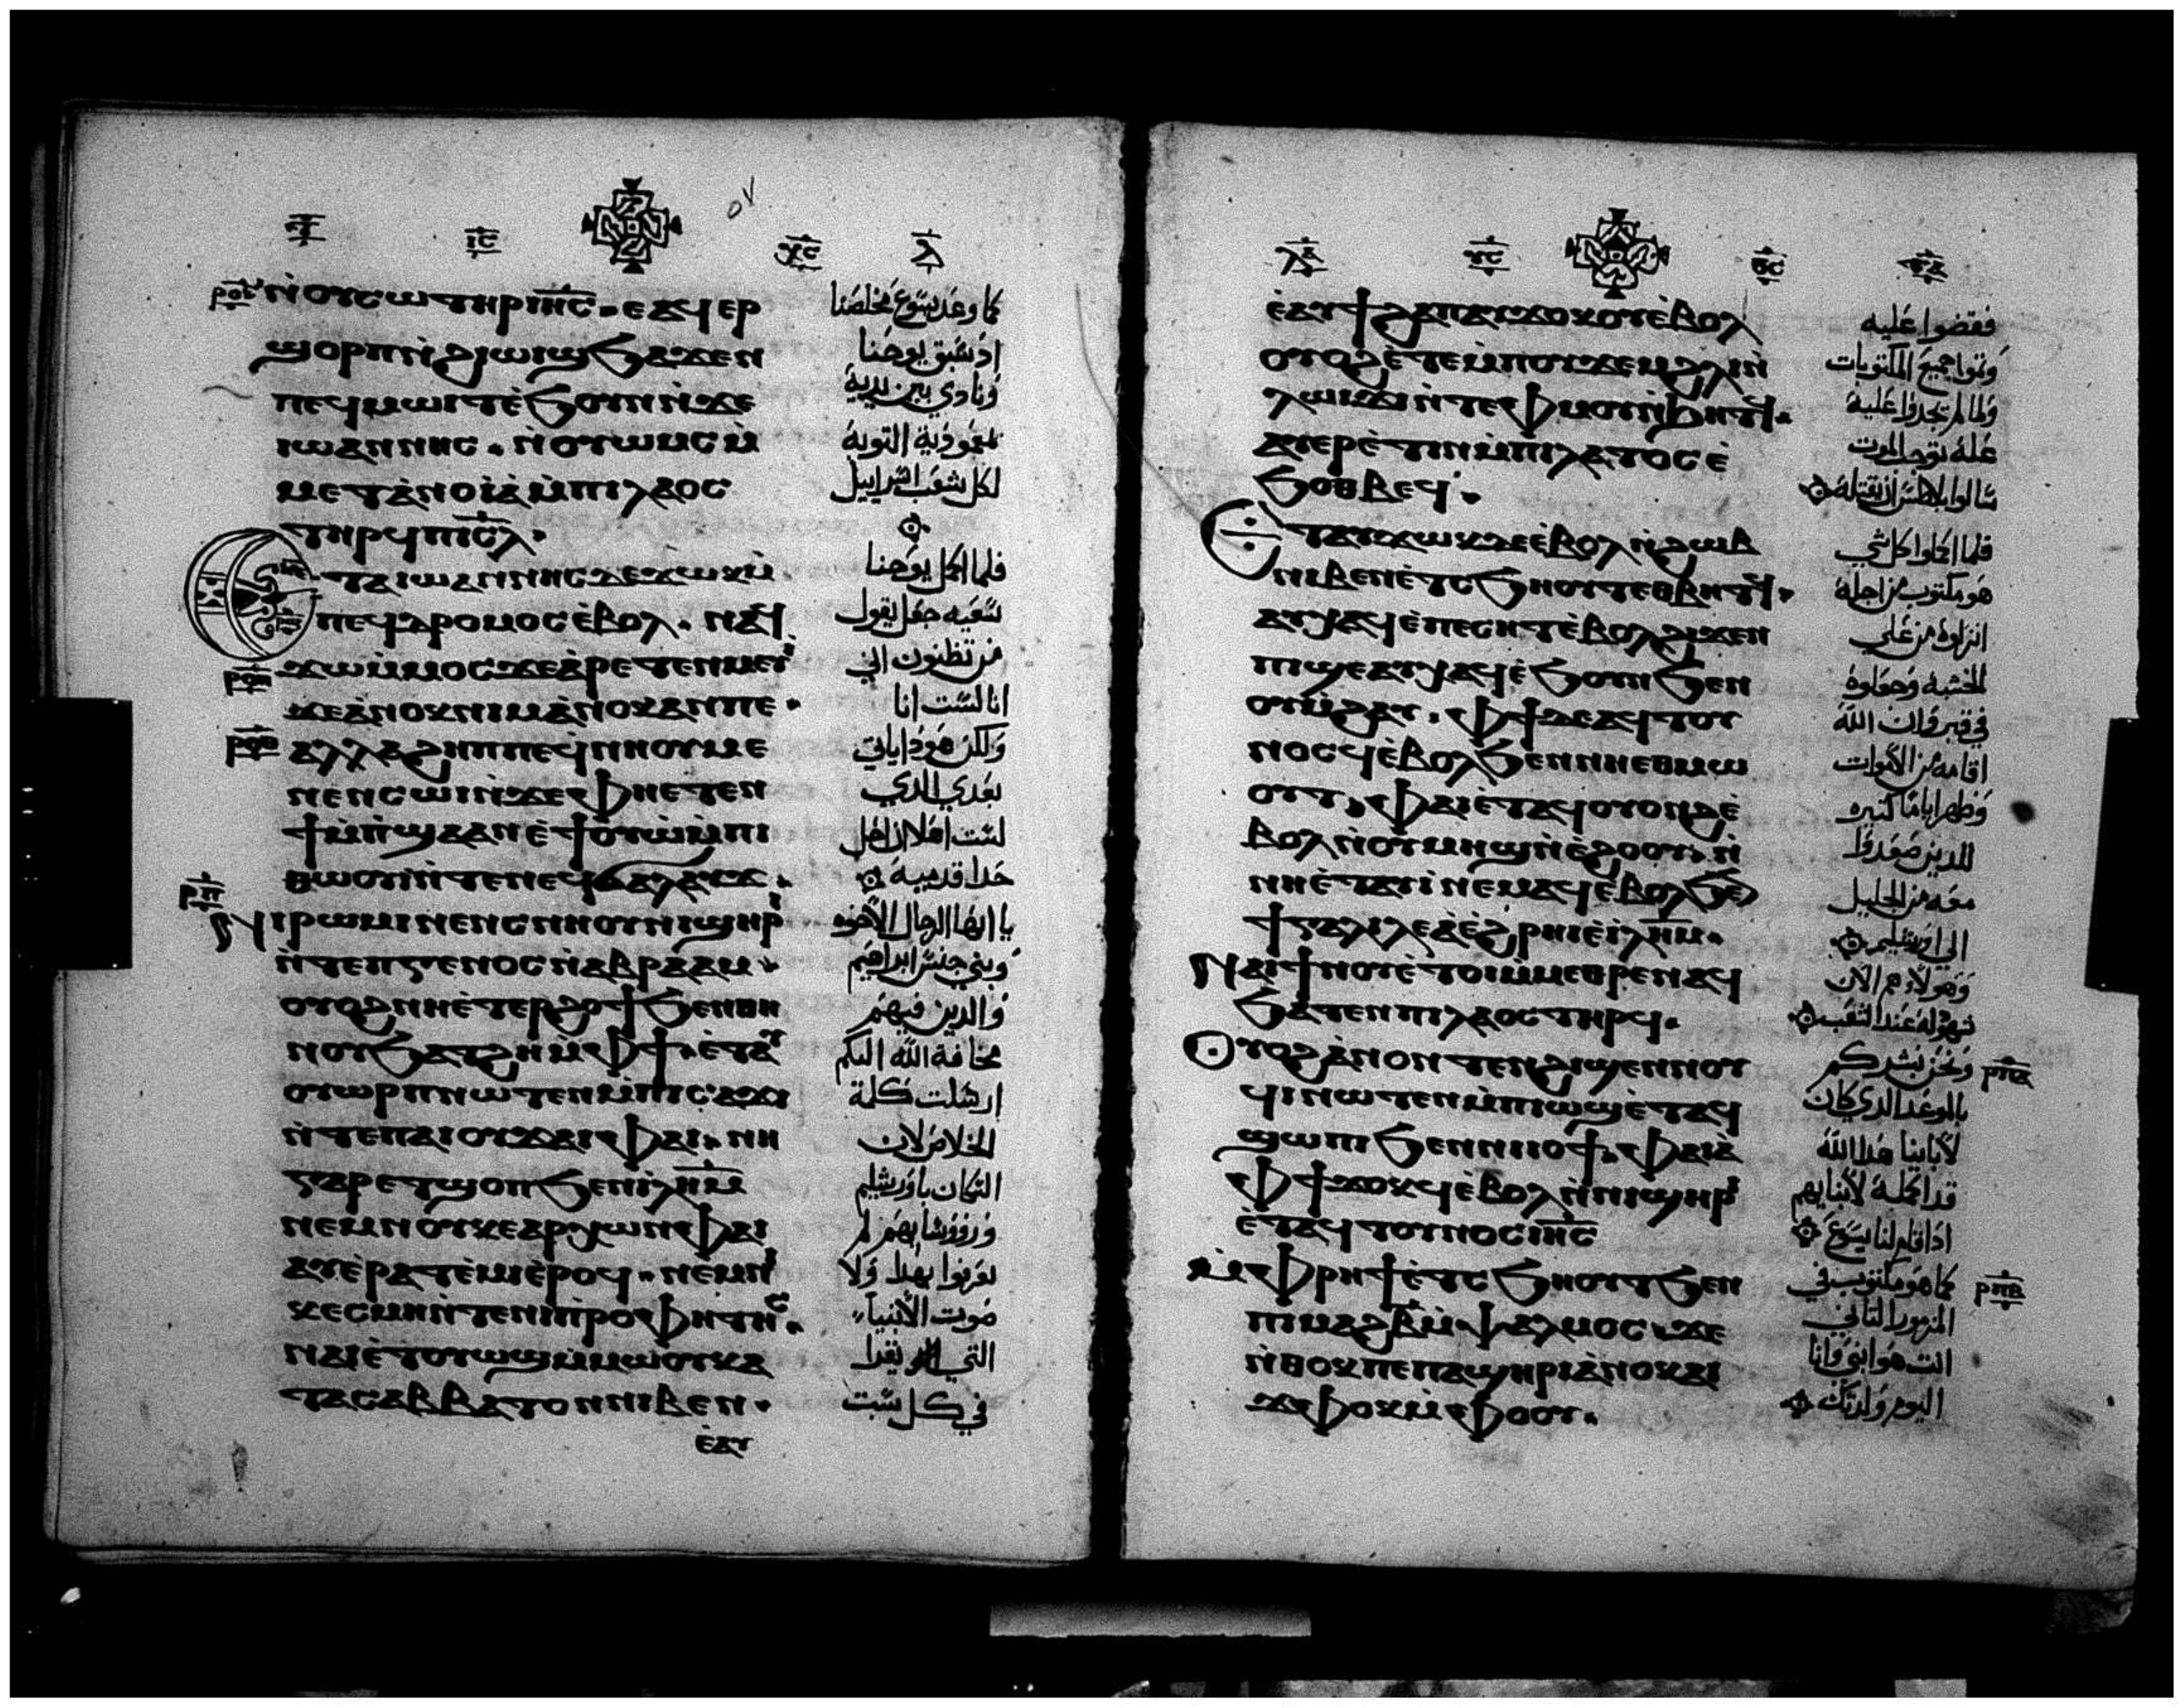 ⲓ̅ⲥ̅ ⲭ̅ⲥ̅ ⲗ̅
ⲛ̀ⲟⲩⲥⲱⲧⲏⲣ ⲓⲏ̅ⲥ̅ . ⲉⲁϥⲉⲣ
ϣⲟⲣⲡ ⲛ̀ϩⲓⲱⲓϣ ϧⲁϫⲉⲛ
ⲡⲉϥⲙⲱⲓⲧ ⲉ̀ϧⲟⲩⲛ ⲛ̀ϫⲉ
ⲓⲱⲁⲛⲛⲏⲥ . ⲛ̀ⲟⲩⲱⲙⲥ ⲙ̀
ⲙⲉⲧⲁ̀ⲛⲟⲓⲁ̀ ⲙ̀ⲡⲓⲗⲁⲟⲥ
ⲧⲏⲣϥ ⲡⲓⲥ̅ⲗ .
ⲉⲧⲁⲓⲱⲁⲛⲛⲏⲥ ⲇⲉ ϫⲱⲕ ⲙ̀
ⲡⲉϥⲇⲣⲟⲙⲟⲥ ⲉ̀ⲃⲟⲗ . ⲛⲁϥ
ϫⲱ ⲙ̀ⲙⲟⲥ ϫⲉ ⲁ̀ⲣⲉⲧⲉⲛⲙⲉⲩⲓ
ϫⲉ ⲁ̀ⲛⲟⲕ ⲛⲓⲙ ⲁ̀ⲛⲟⲕ ⲁⲛ ⲡⲉ .
ⲁⲗⲗⲁ ϩⲏⲡⲡⲉ ϥ̀ⲛⲏⲟⲩ ⲙⲉ
ⲛⲉⲛⲥⲱⲓ ⲛ̀ϫⲉ ⲫⲏⲉⲧⲉⲛ
ϯⲙ̀ⲡ̀ϣⲁ ⲁⲛ ⲉ̀ϯⲟⲩⲱ ⲙ̀ⲡⲓ
ⲑⲱⲟⲩⲓ ⲛ̀ⲧⲉ ⲛⲉϥϭⲁⲗⲁⲩϫ .
ⲛⲓⲣⲱⲙⲓ ⲛⲉⲛⲥⲛⲏⲟⲩ ⲛⲓϣⲏⲣⲓ
ⲛ̀ⲧⲉ ⲡⲅⲉⲛⲟⲥ ⲛ̀ⲁⲃⲣⲁⲁⲙ
ⲟⲩⲟϩ ⲛⲏⲉ̀ⲧⲉⲣϩⲟϯ ϧⲉⲛ ⲑⲏ
ⲛⲟⲩ ϧⲁⲧϩⲏ ⲙ̀ⲫϯ . ⲉ̀ⲧⲁⲩ
ⲟⲩⲱⲣⲡ ⲛⲱⲧⲉⲛ ⲙ̀ⲡⲓⲥⲁϫⲓ
ⲛ̀ⲧⲉ ⲡⲁⲓⲟⲩϫⲁⲓ ⲫⲁⲓ . ⲛⲏ
ⲅⲁⲣ ⲉⲧϣⲟⲡ ϧⲉⲛ ⲓ̀ⲗⲏ̅ⲙ̅
ⲛⲉⲙ ⲛⲟⲩⲕⲉⲁⲣⲭⲱⲛ ⲫⲁⲓ
ⲁⲩⲉ̀ⲣⲁⲧⲉ̀ⲙⲓ ⲉ̀ⲣⲟϥ . ⲛⲉⲙ ⲛⲓ
ⲕⲉⲥⲙⲏ ⲛ̀ⲧⲉ ⲛⲓⲡ̀ⲣⲟⲫⲏⲧⲏⲥ .
ⲛⲁⲓ ⲉ̀ⲧⲟⲩⲱϣ ⲙ̀ⲙⲱⲟⲩ ⲕⲁ
ⲧⲁ ⲥⲁⲃⲃⲁⲧⲟⲛ ⲛⲓⲃⲉⲛ .
ⲉ̀ⲁⲩ
كما وعد يسوع مخلصنا
اذ سبق يوحنا
ونادي بين يديه
بمعموذية التوبة
لكل شعب اسراييل
فلما اكمل يوحنا
سعيه جعل يقول
من تظنون اني
انا لست انا
ولكن هوذا ياتي
بعدي الذي
لست اهلا ان احل
حذا قدميه
يا ايها الرجال الاخوه
وبني جنس ابراهيم
والذين فيهم
مخافة الله اليكم
ارسلت كلمة
الخلاص لان
السكان باورشليم
وروؤسايهم لم
يعرفوا بهذا ولا
صوت الانبياء
التي تقرا
في كل سبت
ⲗ̅ⲁ̅ ⲩ̅ⲥ̅ ⲑ̅ⲥ̅
ⲉ̀ⲁⲩϯϩⲁⲡ ⲁⲩϫⲟⲕⲟⲩ ⲉ̀ⲃⲟⲗ
ⲟⲩⲟϩ ⲉ̀ⲧⲉ ⲙ̀ⲡⲟⲩϫⲉⲙ ϩⲗⲓ ⲛ̀
ⲗⲱⲓϫⲓ ⲛ̀ⲧⲉ ⲫⲙⲟⲩ ⲛ̀ϧⲏⲧϥ .
ⲁⲩⲉⲣⲉ̀ⲧⲓⲛ ⲙ̀ⲡⲓⲗⲁⲧⲟⲥ ⲉ̀
ϧⲟⲑⲃⲉϥ .
ⲉⲧⲁⲩϫⲱⲕ ⲇⲉ ⲉ̀ⲃⲟⲗ ⲛ̀ϩⲱⲃ
ⲛⲓⲃⲉⲛ ⲉ̀ⲧⲥϧⲏⲟⲩⲧ ⲉⲑⲃⲏⲧϥ .
ⲁⲩⲭⲁϥ ⲉ̀ⲡⲉⲥⲏⲧ ⲉ̀ⲃⲟⲗ ϩⲓϫⲉⲛ
ⲡⲓϣⲉ ⲁⲩⲭⲁϥ ⲉ̀ϧⲟⲩⲛ ϧⲉⲛ
ⲟⲩⲙ̀ϩⲁⲩ . ⲫϯ ⲇⲉ ⲁϥⲧⲟⲩ
ⲛⲟⲥϥ ⲉ̀ⲃⲟⲗ ϧⲉⲛ ⲛⲏⲉⲑⲙⲱ
ⲟⲩⲧ . ⲫⲁⲓ ⲉ̀ⲧⲁϥⲟⲩⲟⲛϩ ⲉ̀
ⲃⲟⲗ ⲛ̀ⲟⲩⲙⲏϣ ⲛ̀ⲉ̀ϩⲟⲟⲩ . ⲛ̀
ⲛⲏⲉ̀ⲧⲁⲩⲓ̀ ⲛⲉⲙⲁϥ ⲉ̀ⲃⲟⲗ ϧⲉ
ϯⲅⲁⲗⲓⲗⲉⲁ̀ ⲉ̀ϩⲣⲏⲓ ⲉ̀ⲓ̀ⲗⲏ̅ⲙ̅ .
ⲛⲁⲓ ϯⲛⲟⲩ ⲉ̀ⲧⲟⲓ ⲙ̀ⲙⲉⲑⲣⲉ ⲛⲁϥ
ϧⲁⲧⲉⲛ ⲡⲓⲗⲁⲟⲥ ⲧⲏⲣϥ .
ⲟⲩⲟϩ ⲁ̀ⲛⲟⲛ ⲧⲉⲛϩⲓϣⲉⲛⲛⲟⲩ
ϥⲓ ⲛⲱⲧⲉⲛ ⲙ̀ⲡⲓⲱϣ ⲉ̀ⲧⲁϥ
ϣⲱⲡⲓ ϧⲉⲛ ⲛⲓⲓⲟϯ . ⲫⲁⲓ ⲁ̀
ⲫϯ ϫⲟⲕϥ ⲉ̀ⲃⲟⲗ ⲛ̀ⲛⲓϣⲏⲣⲓ
ⲉ̀ⲧⲁϥⲧⲟⲩⲛⲟⲥ ⲓⲏ̅ⲥ̅
ⲙ̀ⲫⲣⲏϯ ⲉ̀ⲧⲥϧⲏⲟⲩⲧ ϧⲉⲛ
ⲡⲓⲙⲁϩⲃ̅ ⲙ̀ⲯⲁⲗⲙⲟⲥ ϫⲉ
ⲛ̀ⲑⲟⲕ ⲡⲉ ⲡⲁϣⲏⲣⲓ ⲁ̀ⲛⲟⲕ ⲁⲓ
ϫⲫⲟⲕ ⲙ̀ⲫⲟⲟⲩ .
فقضوا عليه
وتموا جميع المكتوبات
ولما لم يجدوا عليه
علة توجب الموت
سالوا بيلاطس ان يقتله
فلما اكملوا كل شي
هو مكتوب من اجله
انزلوه من علي
الخشبه وجعلوه
في قبر وان الله
اقامه من الاموات
وظهر اياما كتيره
للدين صعدوا
معه من الجليل
الي اورشليم
وهولاء هم الان
شهوده عند الشعب
ونحن نبشركم
بالموعد الدي كان
لاباينا هذا الله
قد اكمله لابنايهم
اذ اقام لنا يسوع
كما هو مكتوب في
المزمور التاني
انت هو ابني وانا
اليوم ولدتك
ⲣⲡ̅ⲁ̅
ⲣⲡ̅ⲃ̅